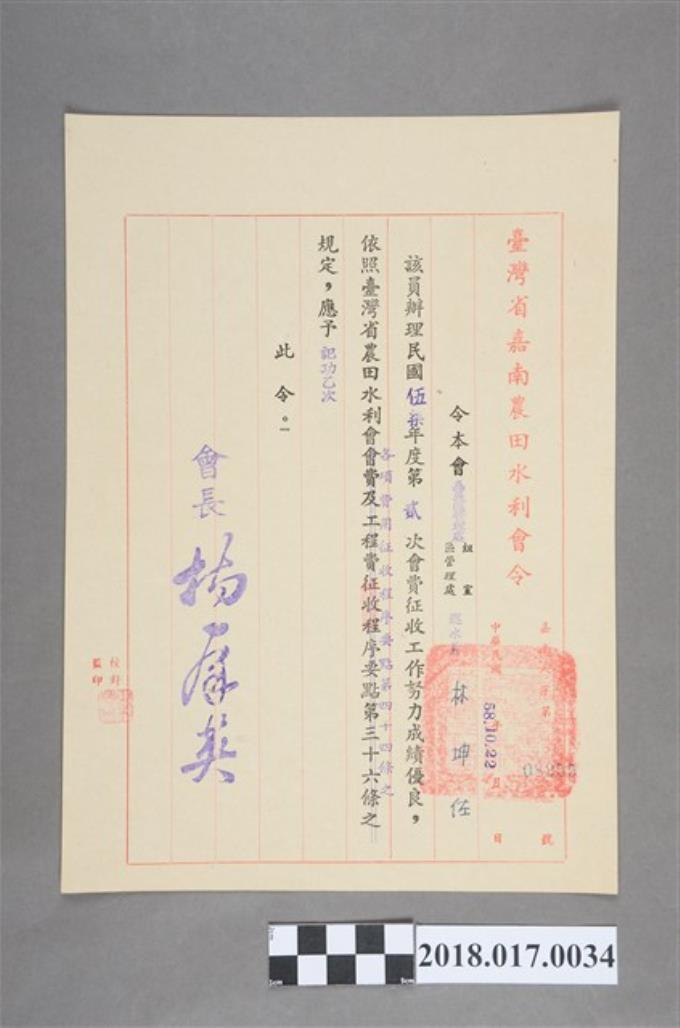 臺灣省嘉南農田水利會令
中華民國 年 月 日
58.10.22
號
令本會 組室
區管理處
林坤任
該員辦理民國伍柒年度第貳次會費征收工作努力成績優良，
各項費用征收程序要點第四十四條之
依照臺灣省農田水利會會費及工程費征收程序要點第三十六條之
規定，應予記功乙次
此令。
會長
校對
監印
2018.017.0034